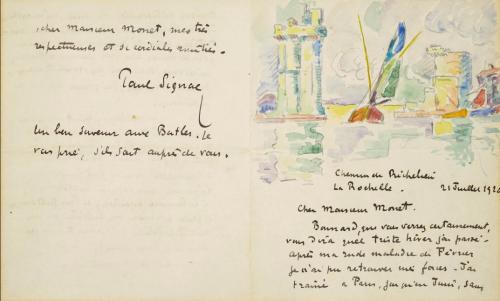 Chemin de Richelieu
La Rochelle. 21 Juillet 1920
Cher Monsieur Monet.
Bonnard, que vous verrez certainement,
vous dira quel triste hiver j'ai passé.
après ma rude maladie de Février
je n'ai pu retrouver mes forces. J'ai
traîné à Paris, jusqu'en Juin, sans
cher Monsieur Monet, mes très
respectueuses et si cordiales amitiés.
Paul Signac
Un bon souvenir aux Butler. Je
vous prie, s'ils sont auprès de vous.